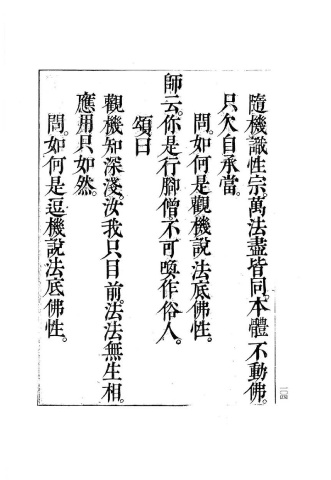 隨機識性宗。萬法盡皆同。本體不動佛。
只欠自承當。
問。如何是觀機說法底佛性。
師云。你是行腳僧。不可喚作俗人。
頌曰
觀機知深淺。汝我只目前。法法無生相。
應用只如然。
問。如何是逗機說法底佛性。